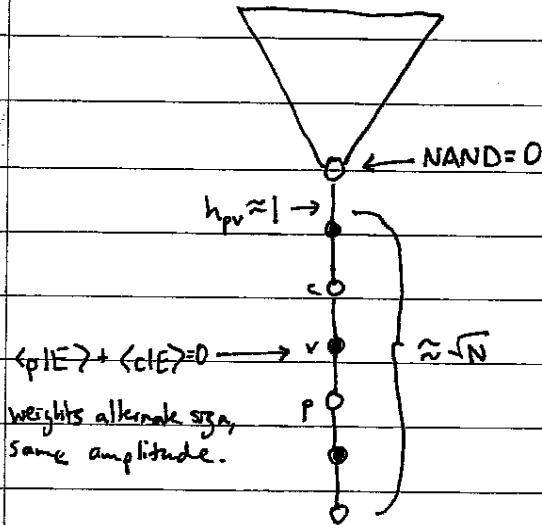 NAND=0
h_pv≈1
c
≈√N
⟨p|E⟩+⟨c|E⟩=0
v
weights alternate sign,
p
same amplitude.